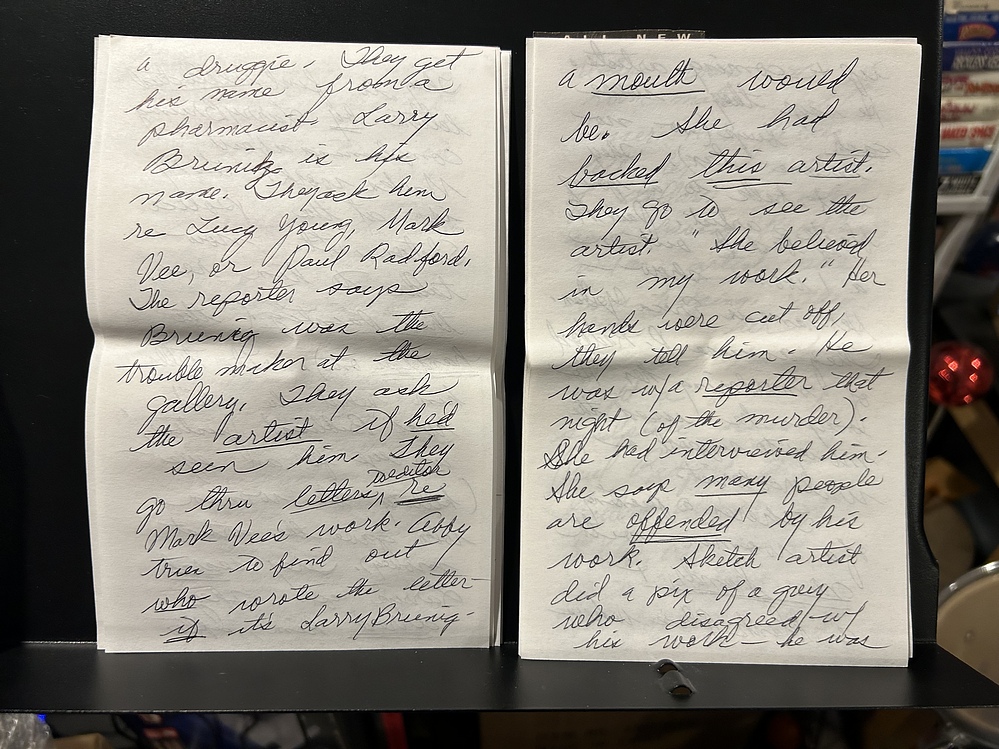 a druggie. They get
his name from a
pharmacist Larry
Brunig is his
name. They ask him
re Lucy Young, Mark
Vee, or Paul Radford.
The reporter says
Brunig was the
trouble maker at the
gallery. They ask
the artist if he'd
seen him They
go thru letters, to editor re
Mark Vee's work. Abby
tries to find out
who wrote the letter-
if it's Larry Brunig-
ALL NEW
a mouth would
be. She had
backed this artist.
They go to see the
artist. "She believed
in my work." Her
hands were cut off,
they tell him. He
was w/a reporter that
night (of the murder).
She had interviewed him.
She says many people
are offended by his
work. Sketch artist
did a pix of a guy
who disagreed w/
his work - he was